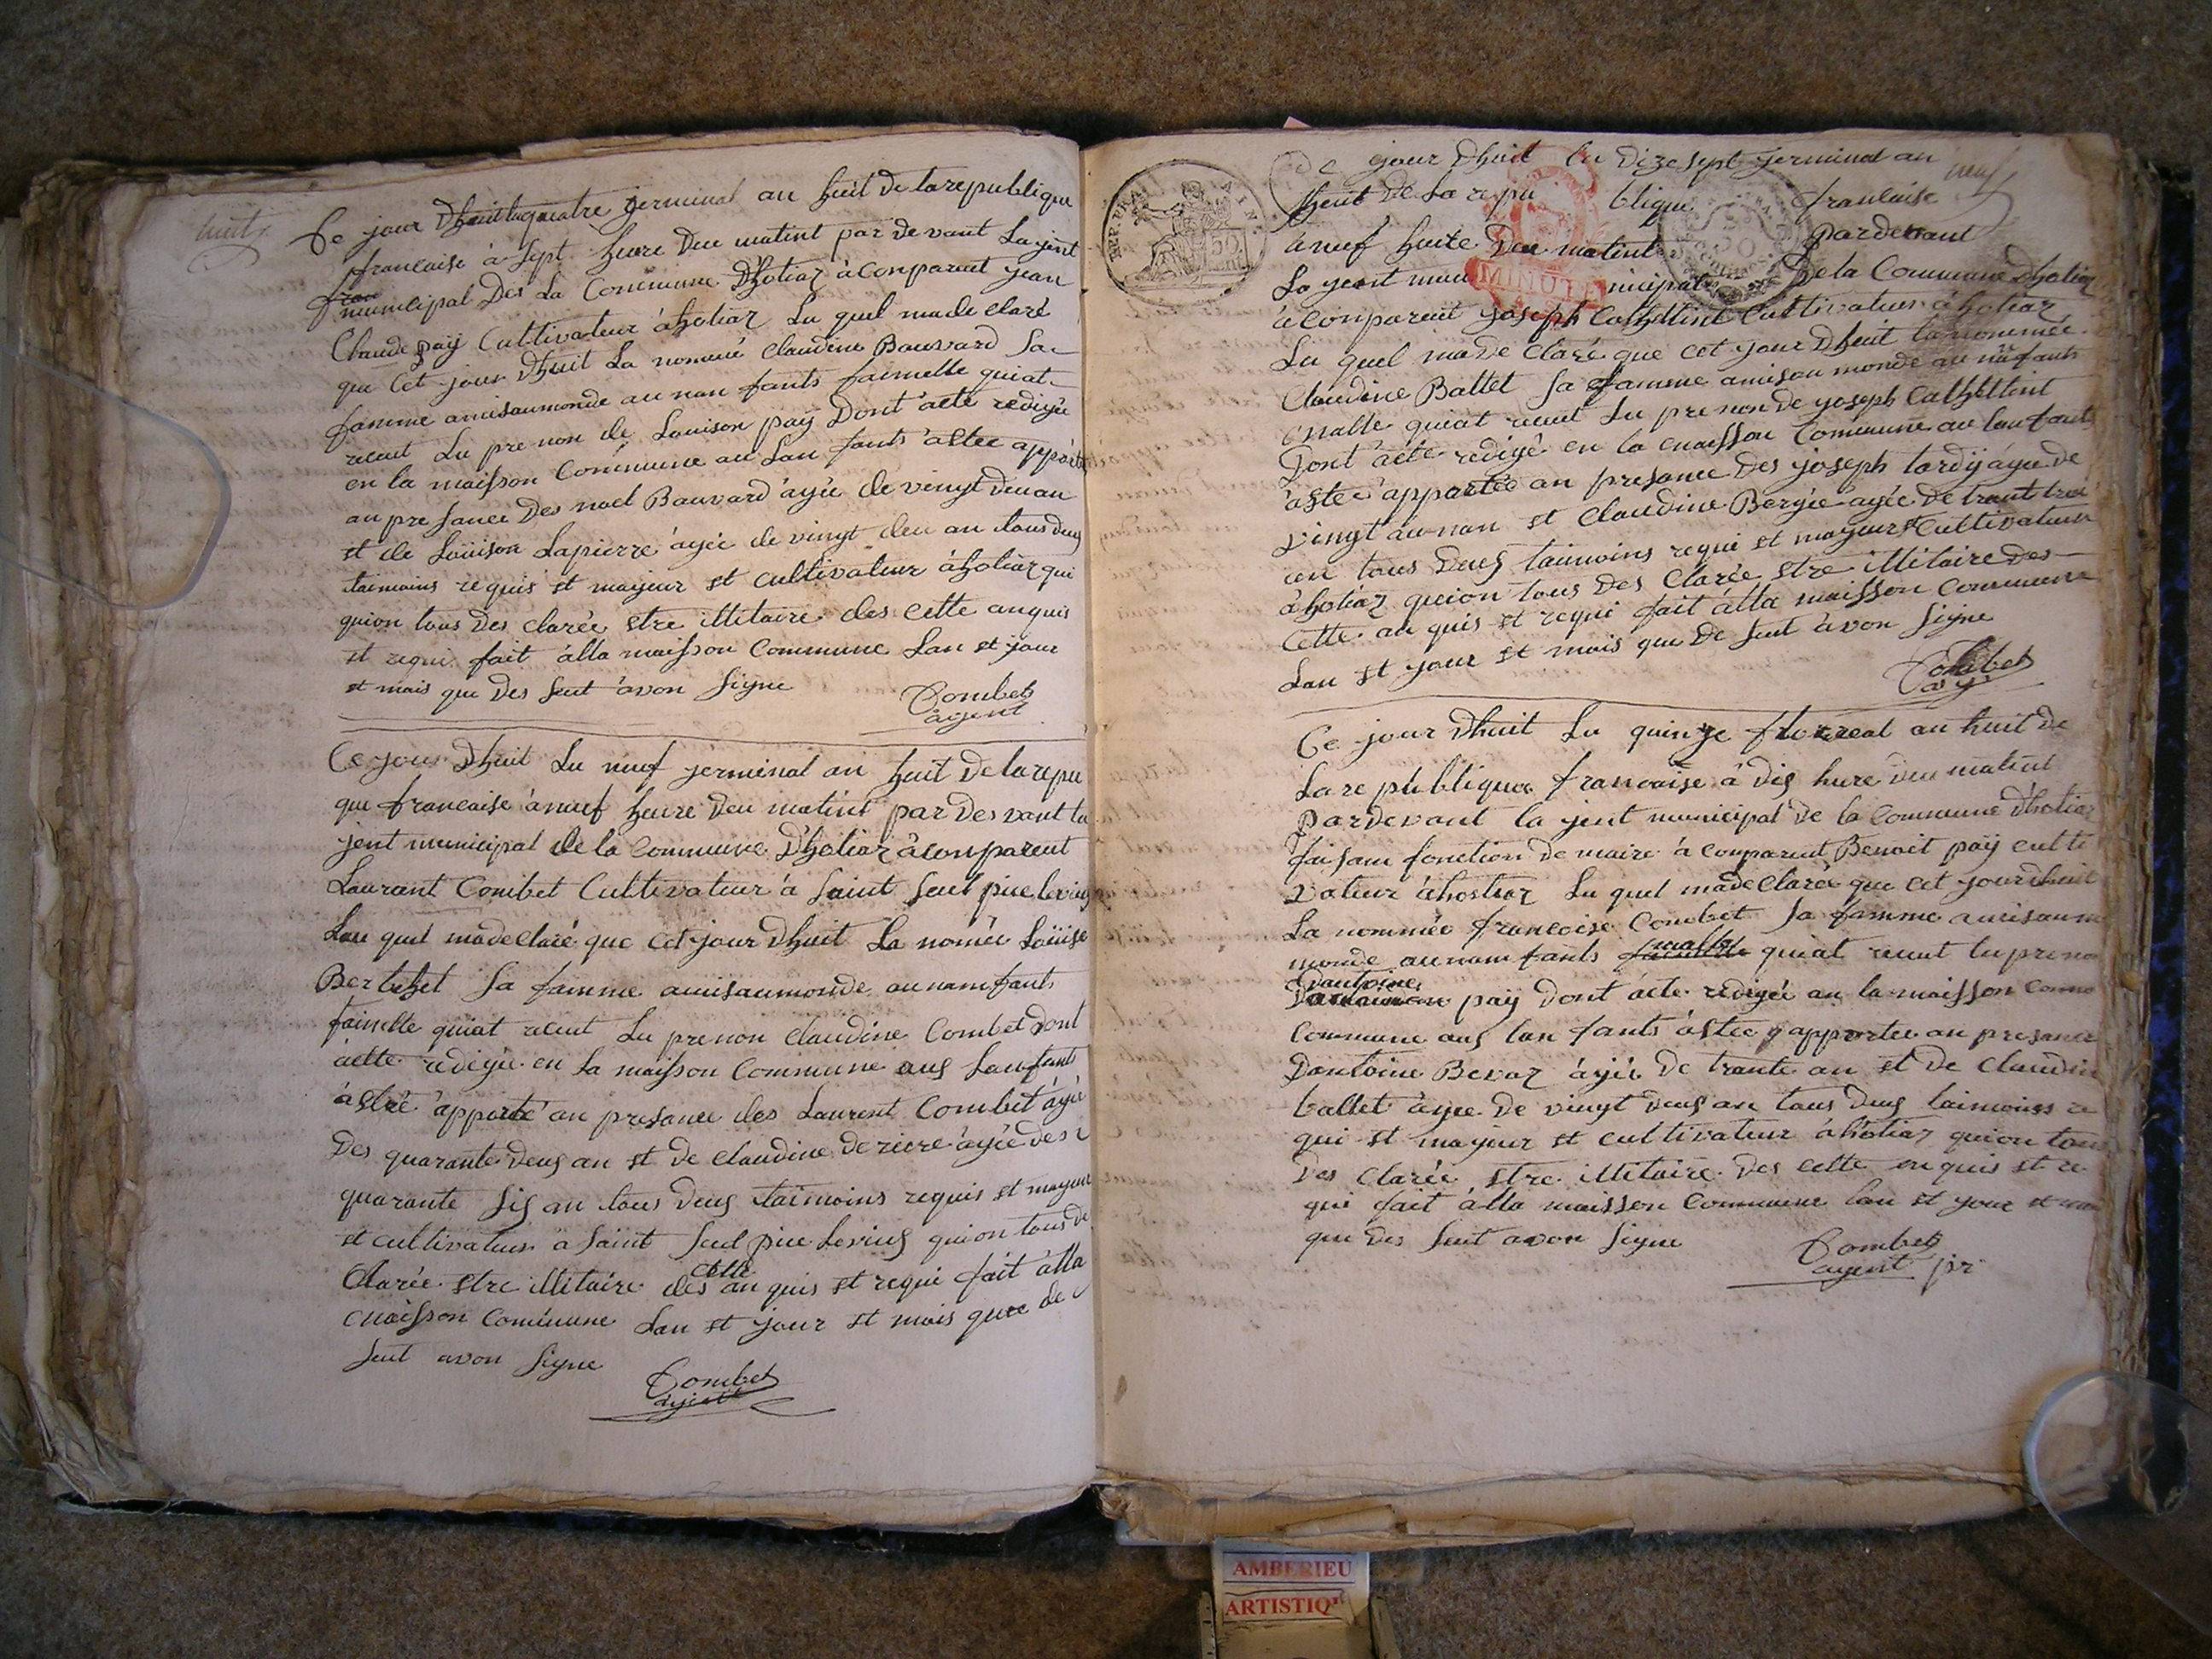 huit
Ce jour Dhuit lu quatre jerminal an huit De la republique
francaise à sept heure Deu matint par de vant La jent
municipal Des La Commune Dhotiaz à conpareut jean
Claude paÿ Cultivateur àhotiaz Lu quel ma de claré
que Cet jour Dhuit La nomeé Claudine Bauvard Sa
famme amisaumonde au nan fants faimelle quiat
recut Lu pre non de Louison paÿ Dont acte redigée
en la maisson Commune au Lan fants astee apporte
au presance Des noel Bauvard àgée de vingt deu an
et de Loüison Lapierre àgée de vingt deu an tous deus
taimoins requis et maijeur et cultivateur àhotiaz qui
quion tous Des clarée estre illitaire des cette anquis
et requi fait àlla maisson Commune Lan et jour
et mais que Des sut avon signe
Combet
agent
Ce jour Dhuit Lu neuf jerminal an huit De la repu
que francaise à neuf heure Deu matint par Des vant la
jent municipal de la Commune Dhotiaz àconpareut
Laurant Combet Cultivateur à Saint Seul pice levieus
Lau quel madeclaré que Cet jour Dhuit La nomée Loüise
Berthet Sa famme amisaumonde aunanfants
faimelle quiat recut Lu prenon Claudine Combet dont
acte redigée en La maisson Commune aus Lanfants
àstré apporte an presance des Laurent Combet àgé
Des quarante deus an et de Claudine deriere àgée des
quarante sis an tous deus taimoins requis et mayeur
et cultivateur à Saint Seul pice Levieus quion tous de
Clarée estre illitaire des cette an quis et requi fait àlla
maisson Commune Lan et jour et mois que de
sut avon signe
Combet
agent
IMP. 50 AIN.
neuf
Ce jour Dhuit lu Dizesept jerminal an
huit De La repu blique francaise
à neuf heure Deu matint pardevant
La jent mu nicipal De la Commune Dhotiaz
MINUTE
àconpareut joseph Cathellint Cultivateur àhotiaz
Lu quel ma de claré que cet jour Dhuit la nommée
Claudine Ballet sa famme amisau monde au nanfants
malle quiat recut Lu pre non de yoseph Cathellint
Dont acte redigé en la maisson Commune au lanfants
astée apportée an presance Des joseph tardy àgée de
vingt au nan et Claudine Bergée agée De trant troi
an tous Deus taimoins requi et mayeur et Cultivateur
àhotiaz quion tous Des Clarée estre illitaire Des
Cette an quis et requi fait àlla maisson Commune
Lan et jour et mois que De sut avon signe
Combet
Ce jour Dhuit Lu quinze floreal an huit De
La republique francaise à dis hure Deu matint
pardevant la jent municipal De la Commune Dhotiaz
faisam fonction de maire à conpareut Benoit paÿ culti
vateur àhostiaz Lu quel madeclarée que cet jour dhuit
La nommée francoise Combet Sa famme amisaum
monde aunam fants malle quiat recut lu preno
dantoine
paÿ Dont acte redigée an la maisson Commu
Commune aus lan fants astée apportee an presance
Dantoine Bevoz àgée De trante an et de Claudin
ballet àgee De vingt deus an tous Deus taimoins re
qui et mayeur et cultivateur àhotiaz quion tous
Des Clarée estre illitaire Des cette en quis et re
qui fait àlla maisson Commune lan et jour et moi
que Des sut avon signe
Combet
agent pr
AMBERIEU
ARTISTIQ